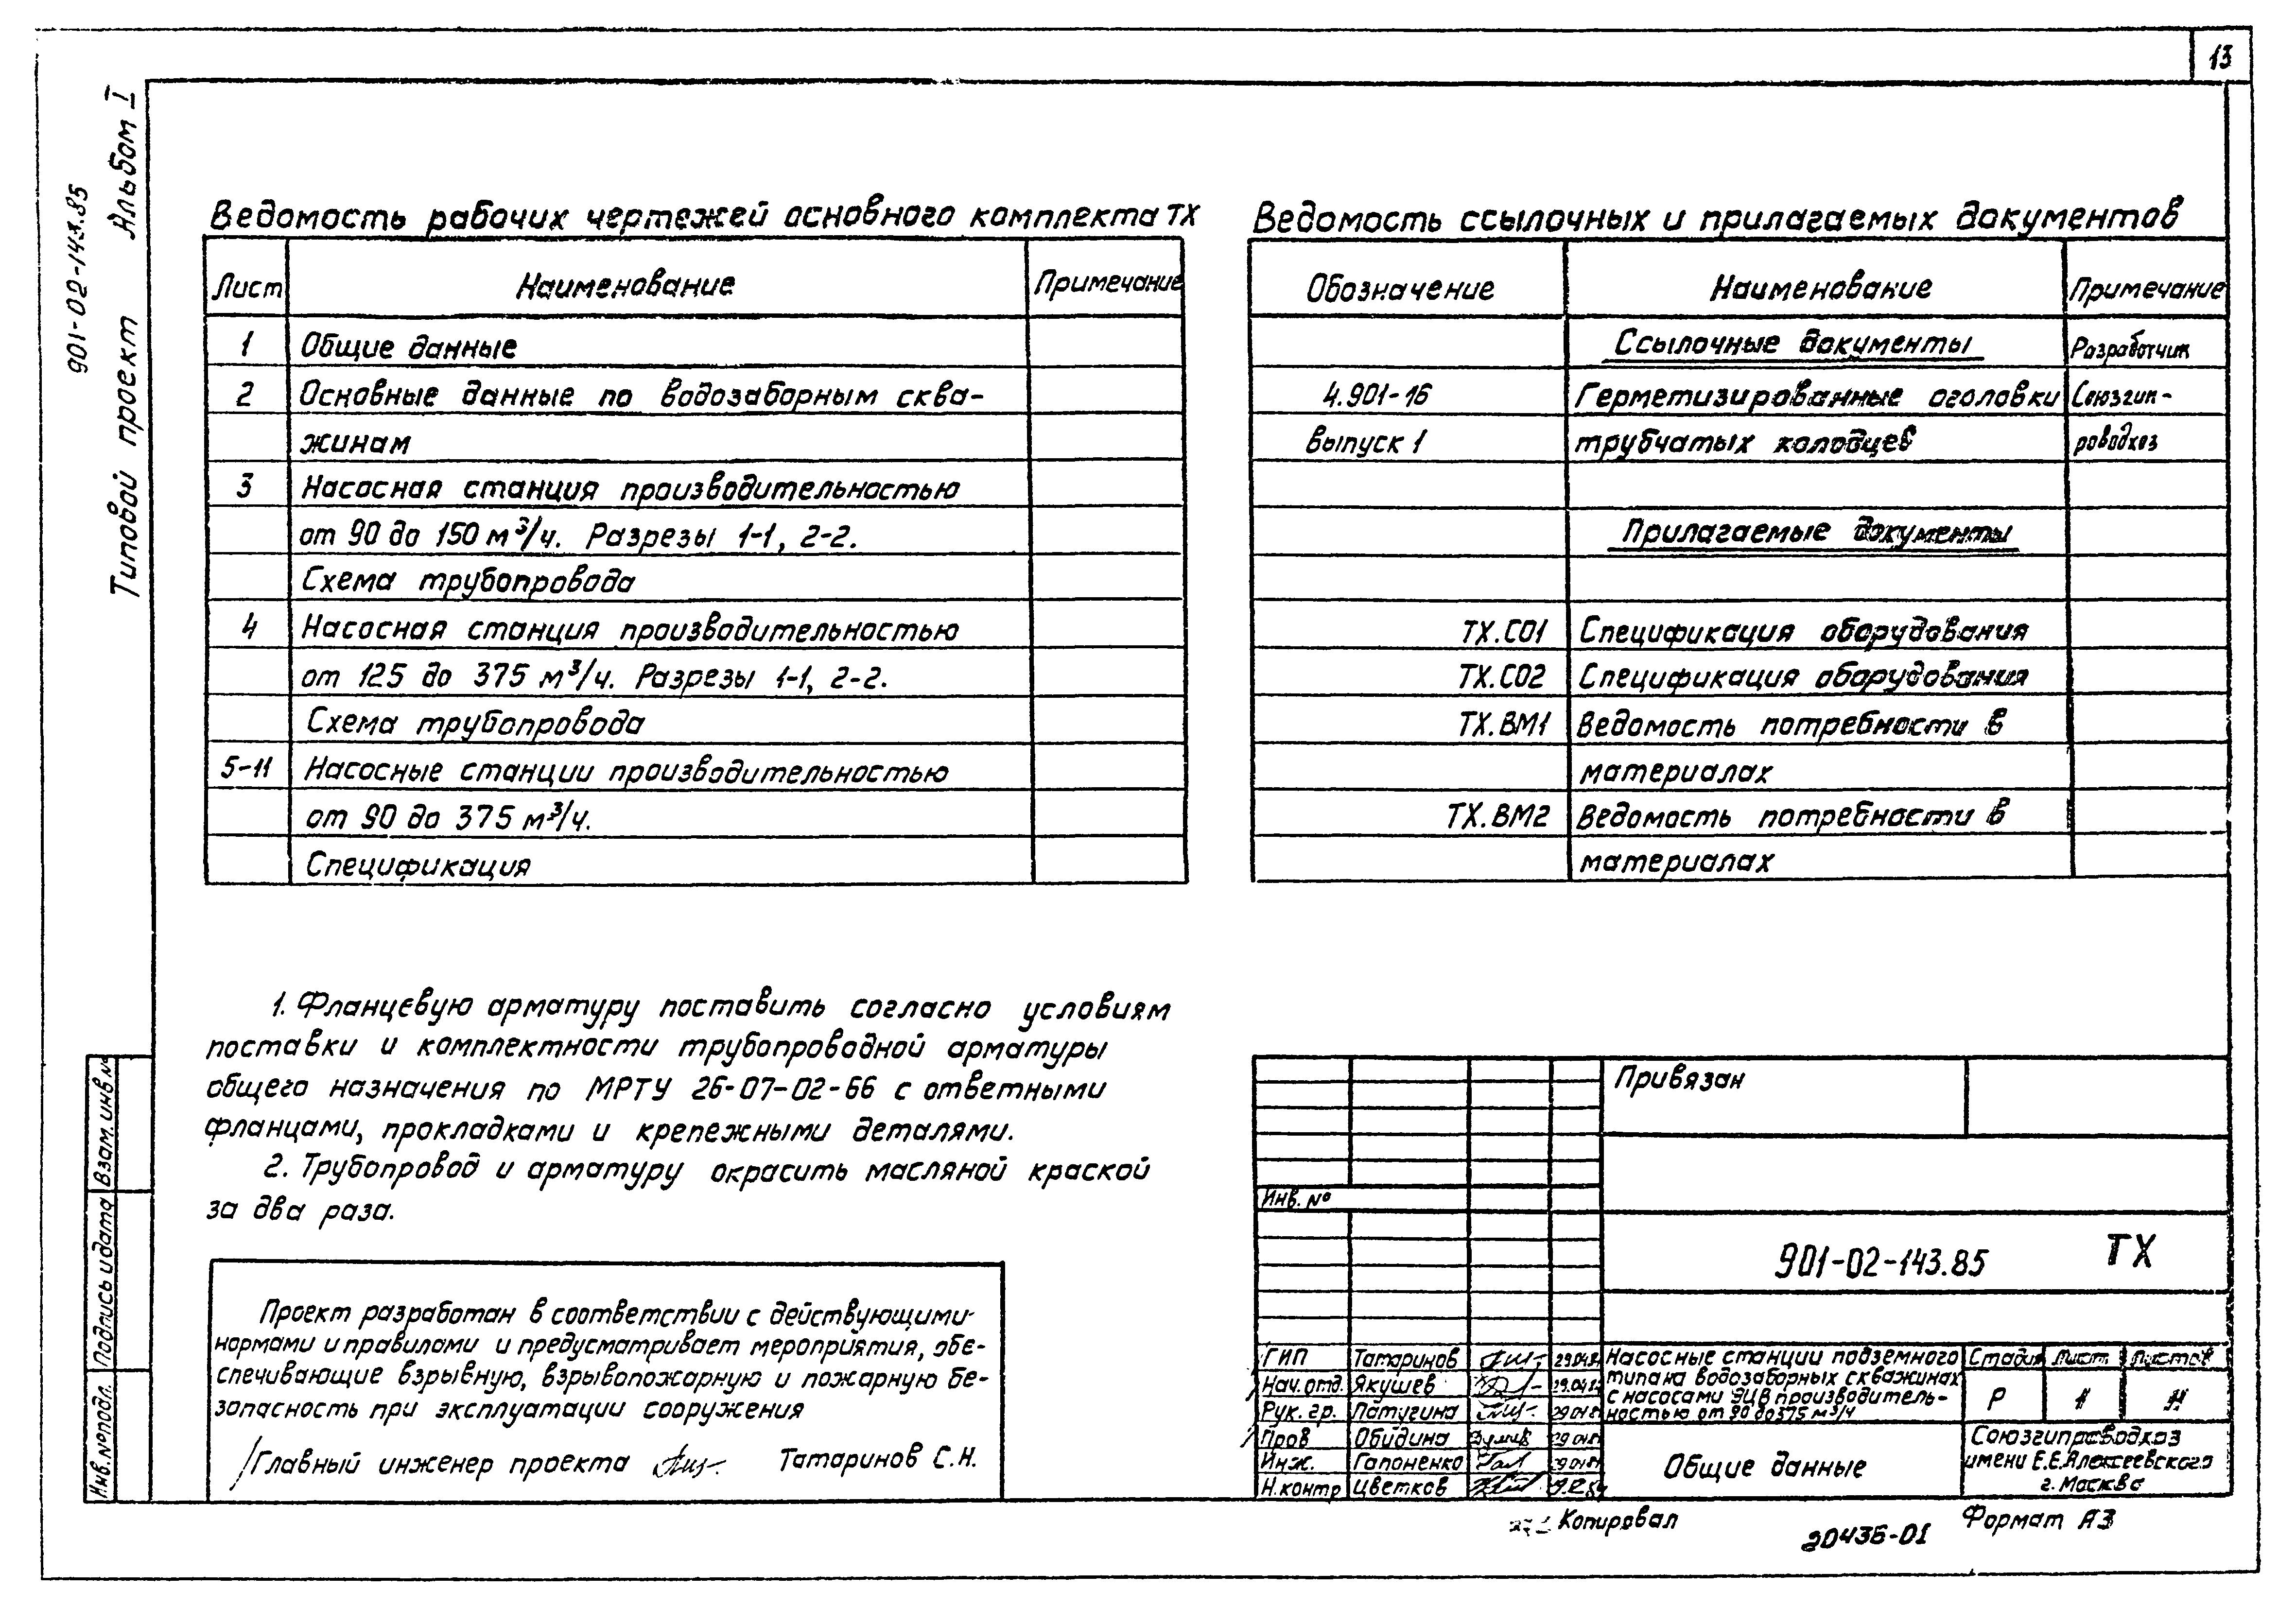 13
901-02-143.85
Типовой проект Альбом I
Ведомость рабочих чертежей основного комплекта ТХ
Лист Наименование Примечание
1 Общие данные
2 Основные данные по водозаборным сква-
жинам
3 Насосная станция производительностью
от 90 до 150 м³/ч. Разрезы 1-1, 2-2.
Схема трубопровода
4 Насосная станция производительностью
от 125 до 375 м³/ч. Разрезы 1-1, 2-2.
Схема трубопровода
5-11 Насосные станции производительностью
от 90 до 375 м³/ч.
Спецификация
Ведомость ссылочных и прилагаемых документов
Обозначение Наименование Примечание
Ссылочные документы Разработчик
4.901-16 Герметизированные оголовки Союзгип-
выпуск 1 трубчатых колодцев роводхоз
Прилагаемые документы
ТХ.СО1 Спецификация оборудования
ТХ.СО2 Спецификация оборудования
ТХ.ВМ1 Ведомость потребности в
материалах
ТХ.ВМ2 Ведомость потребности в
материалах
1. Фланцевую арматуру поставить согласно условиям
поставки и комплектности трубопроводной арматуры
общего назначения по МРТУ 26-07-02-66 с ответными
фланцами, прокладками и крепежными деталями.
2. Трубопровод и арматуру окрасить масляной краской
за два раза.
Проект разработан в соответствии с действующими
нормами и правилами и предусматривает мероприятия, обе-
спечивающие взрывную, взрывопожарную и пожарную бе-
зопасность при эксплуатации сооружения
Главный инженер проекта Татаринов С.Н.
Взам. инв №
Подпись и дата
Инв. № подл.
Привязан
Инв. №
901-02-143.85 ТХ
ГИП Татаринов
Нач. отд. Якушев
Рук. гр. Латугина
Пров Обидина
Инж. Гапоненко
Н. контр Цветков
Насосные станции подземного
типа на водозаборных скважинах
с насосами ЭЦВ производитель-
ностью от 90 до 375 м³/ч
Стадия Лист Листов
Р
Общие данные
Союзгипроводхоз
имени Е.Е.Алексеевского
г. Москва
Копировал
20436-01
Формат А3